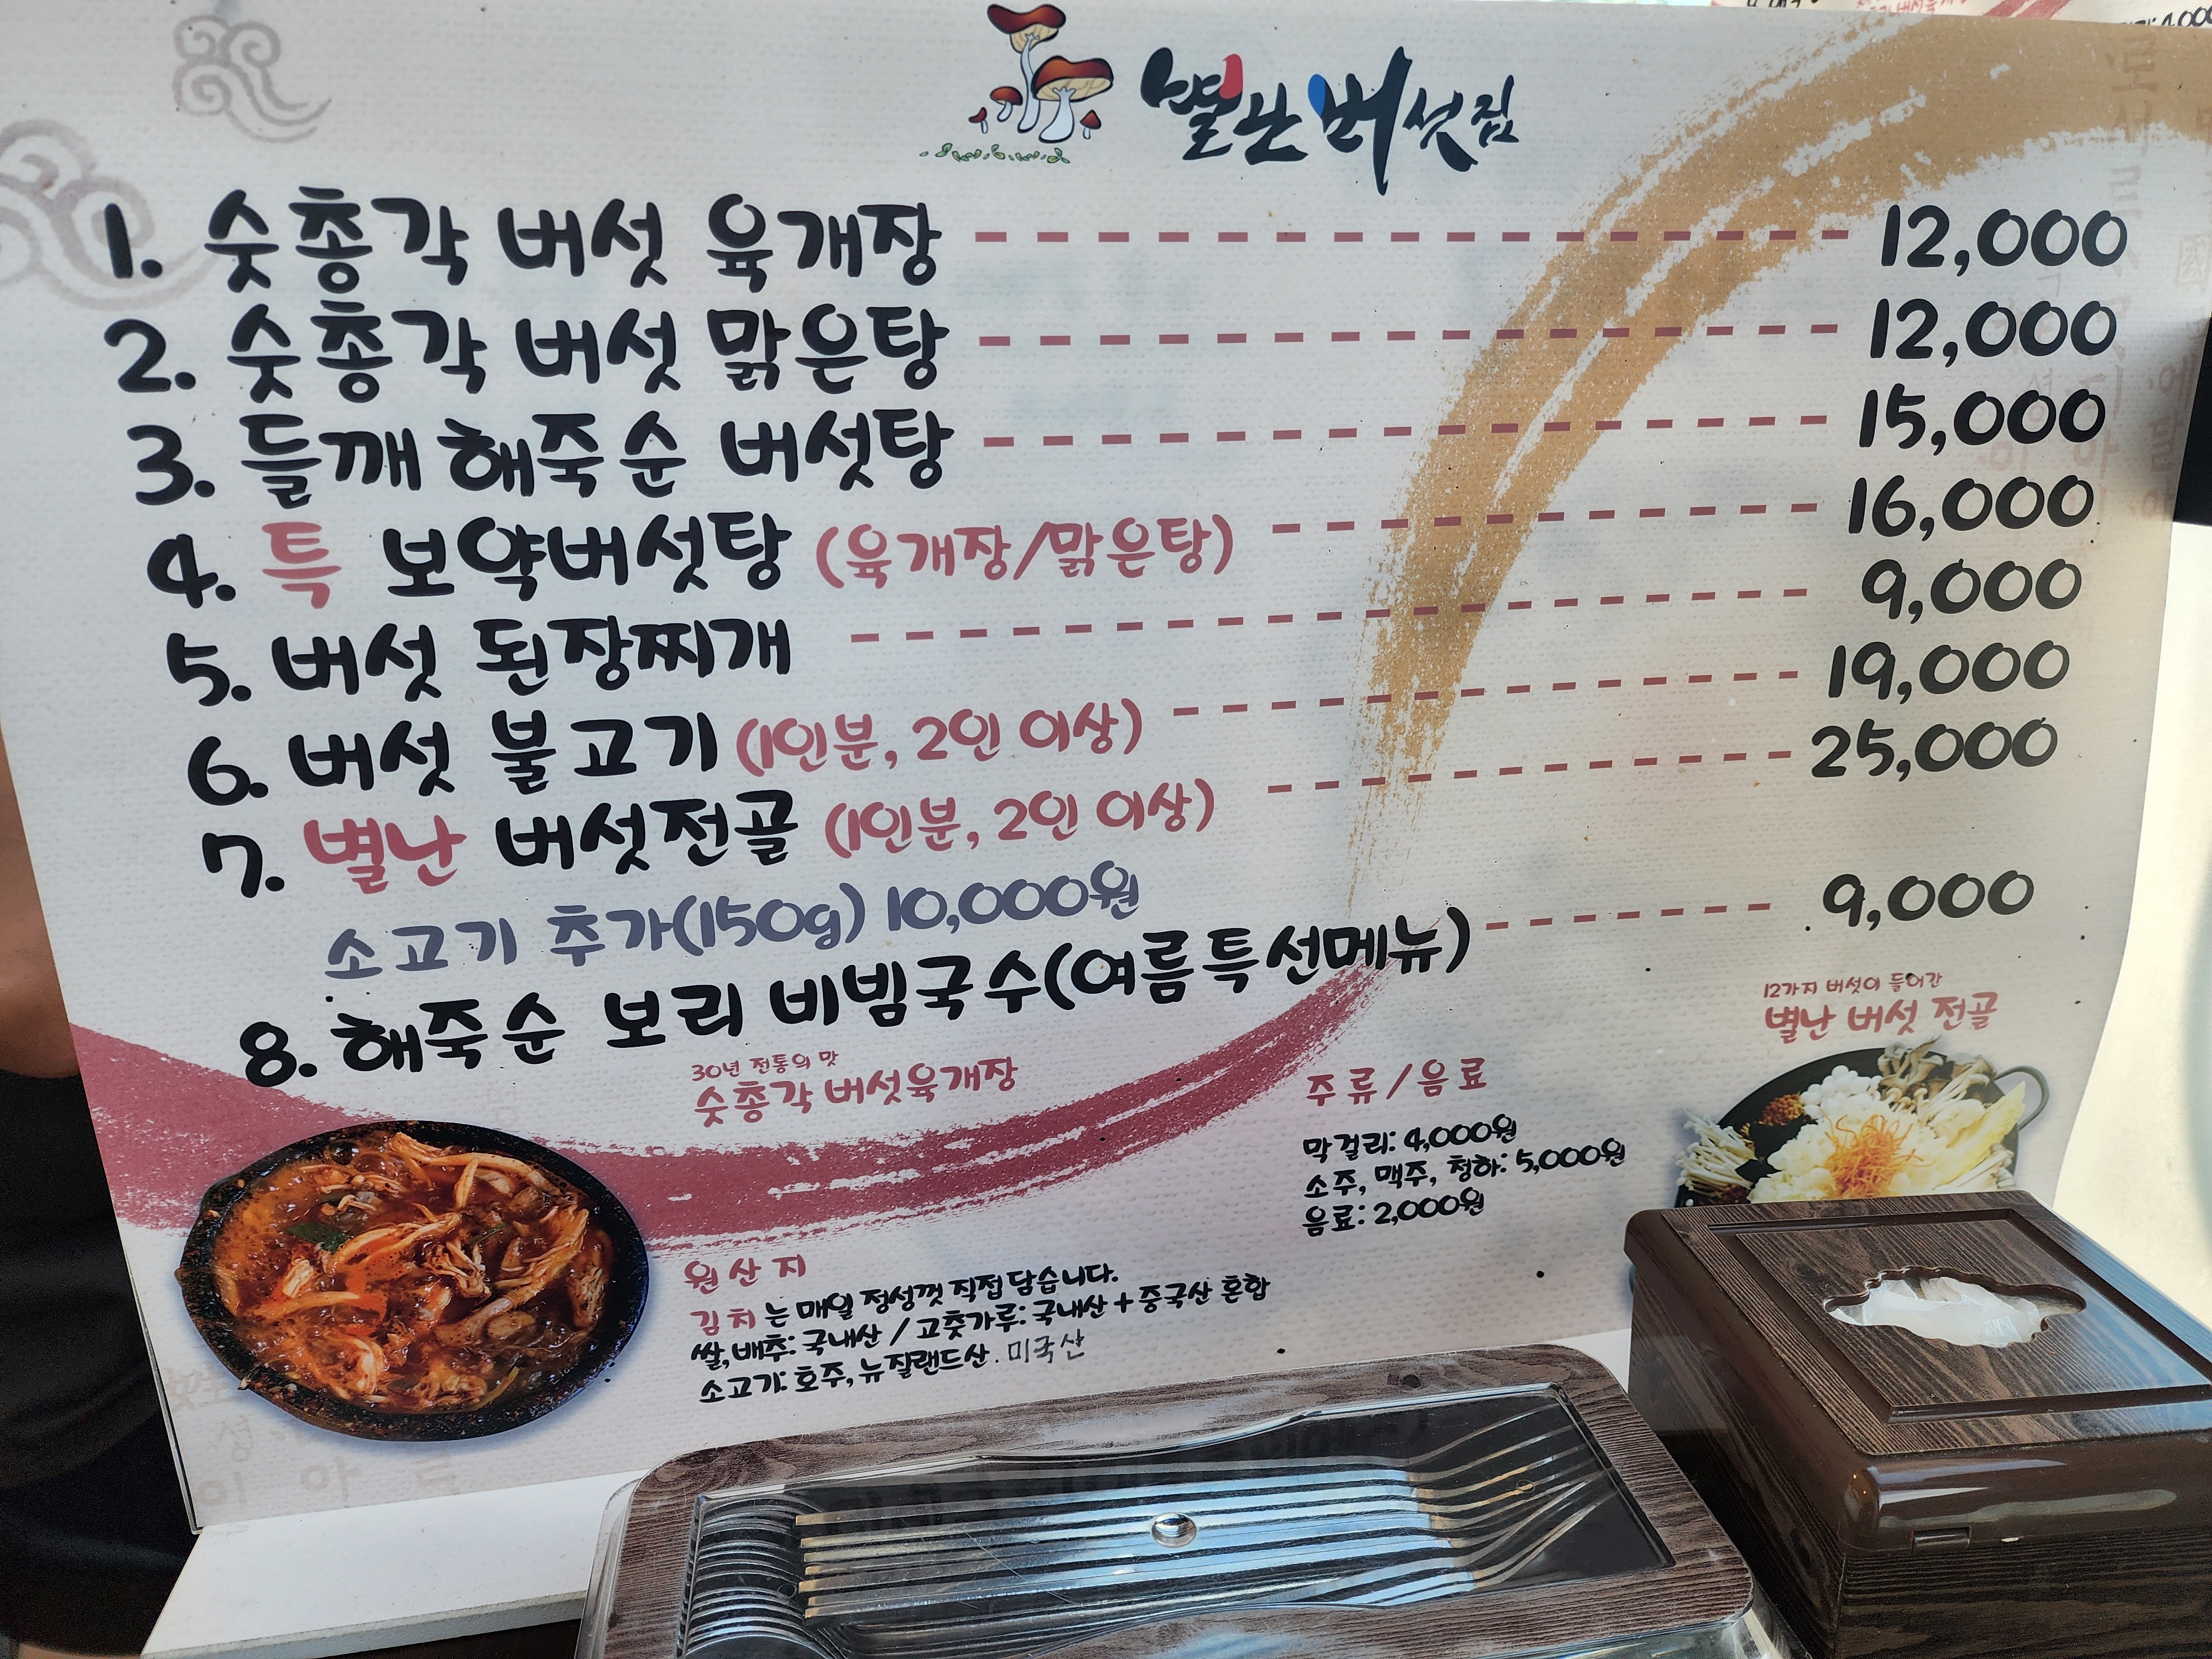 별난버섯집
1. 숫총각 버섯 육개장 12,000
2. 숫총각 버섯 맑은탕 12,000
3. 들깨 해죽순 버섯탕 15,000
4. 특 보약버섯탕 (육개장/맑은탕) 16,000
5. 버섯 된장찌개 9,000
6. 버섯 불고기 (1인분, 2인 이상) 19,000
7. 별난 버섯전골 (1인분, 2인 이상) 25,000
소고기 추가(150g) 10,000원
8. 해죽순 보리 비빔국수(여름특선메뉴) 9,000
30년 전통의 맛
숫총각 버섯육개장
12가지 버섯이 들어간
별난 버섯 전골
주류/음료
막걸리: 4,000원
소주, 맥주, 청하: 5,000원
음료: 2,000원
원산지
김치는 매일 정성껏 직접 담습니다.
쌀,배추: 국내산 / 고춧가루: 국내산 + 중국산 혼합
소고기: 호주,뉴질랜드산. 미국산